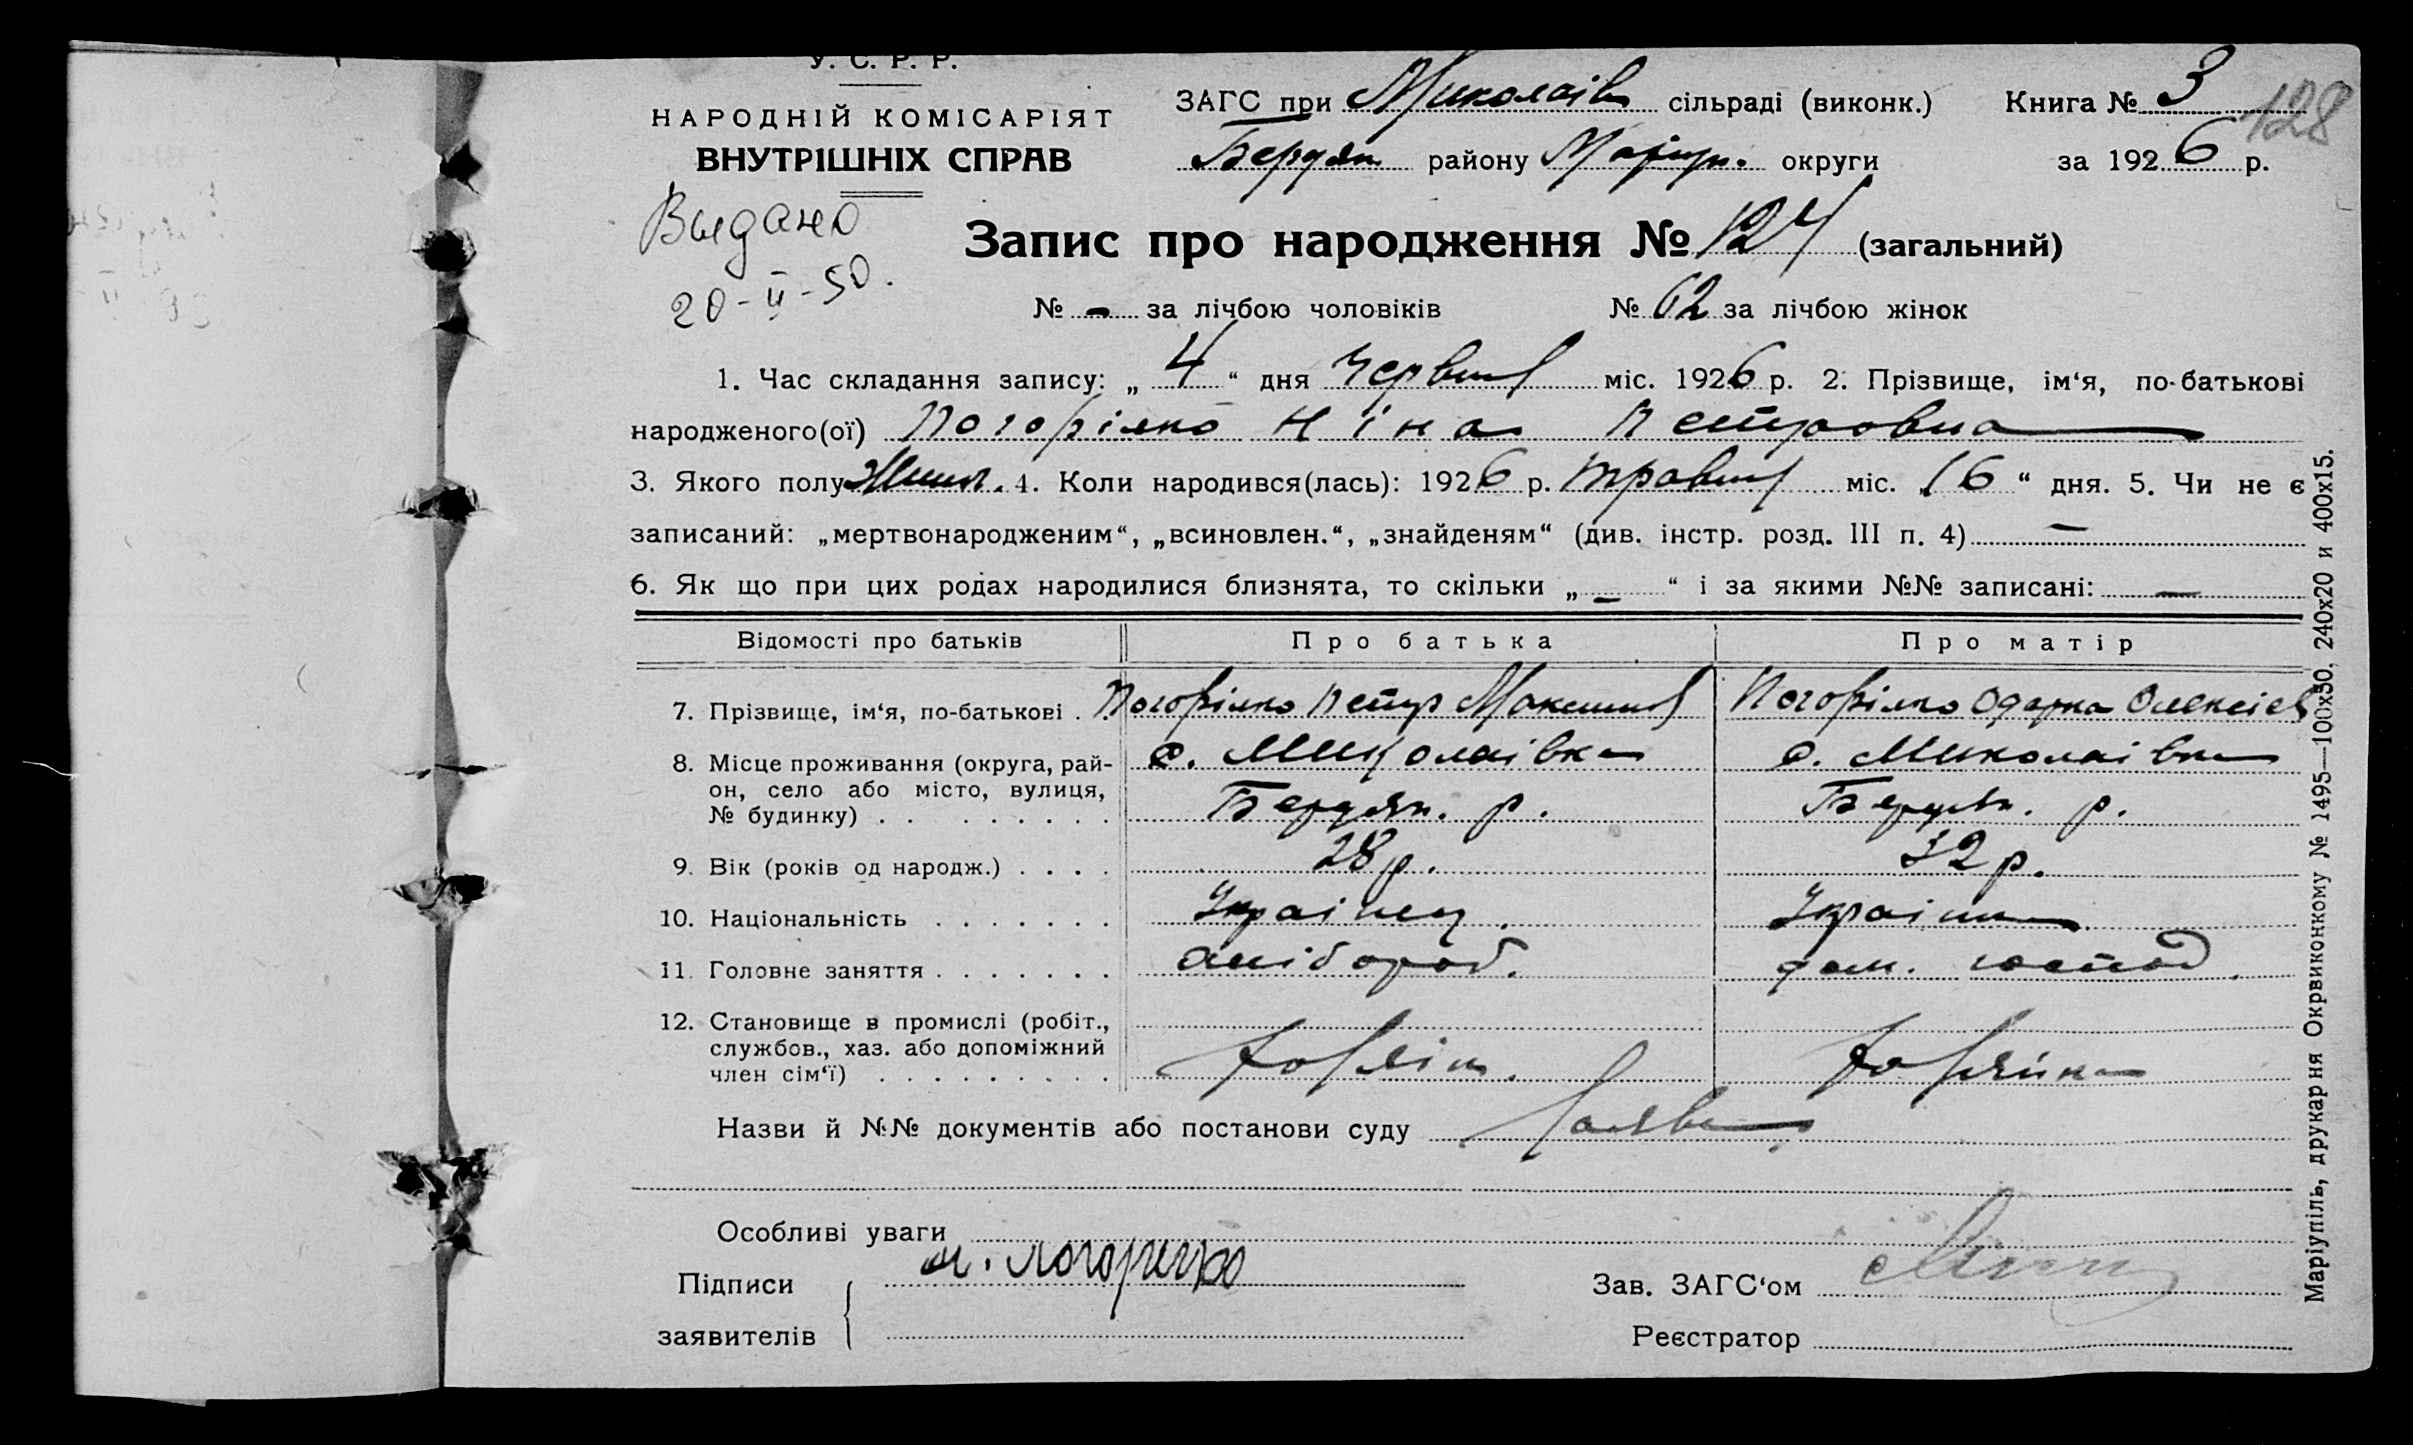 У. С. Р. Р.
НАРОДНІЙ КОМІСАРІЯТ
ВНУТРІШНІХ СПРАВ
ЗАГС при Миколаів сільраді (виконк.) Книга № 3
128
Бердян району Маріуп. округи за 1926 р.
Видано
20-II-50.
Запис про народження № 124 (загальний)
№ - за лічбою чоловіків № 62 за лічбою жінок
1. Час складання запису: „ 4 “ дня Червня міс. 1926 р. 2. Прізвище, ім‘я, по-батькові
народженого(ої) Погорілко Ніна Петровна
3. Якого полу Жіноч. 4. Коли народився(лась): 1926 р. травня міс. „ 16 “ дня. 5. Чи не є
записаний: „мертвонародженим“, „всиновлен.“, „знайденям“ (див. інстр. розд. III п. 4) —
6. Як що при цих родах народилися близнята, то скільки „ — “ і за якими №№ записані: —
Відомості про батьків Про батька Про матір
7. Прізвище, ім‘я, по-батькові . Погорілко Петр Максимов Погорілко Одарка Олексіев
8. Місце проживання (округа, рай- с. Миколаівка с. Миколаівка
он, село або місто, вулиця, Бердян. р. Бердян. р.
№ будинку) . . . . . . . .
9. Вік (років од народж.) . . . . 28 р. 32 р.
10. Національність . . . . . . . Украінец. Украінка
11. Головне заняття . . . . . . . хлібороб. дом. господ.
12. Становище в промислі (робіт.,
службов., хаз. або допоміжний
член сім‘ї) . . . . . . . . .
Назви й №№ документів або постанови суду
Особливі уваги
Підписи
заявителів
Зав. ЗАГС‘ом
Реєстратор
Маріупіль, друкарня Окрвиконкому № 1495—100х50. 240х20 и 400х15.